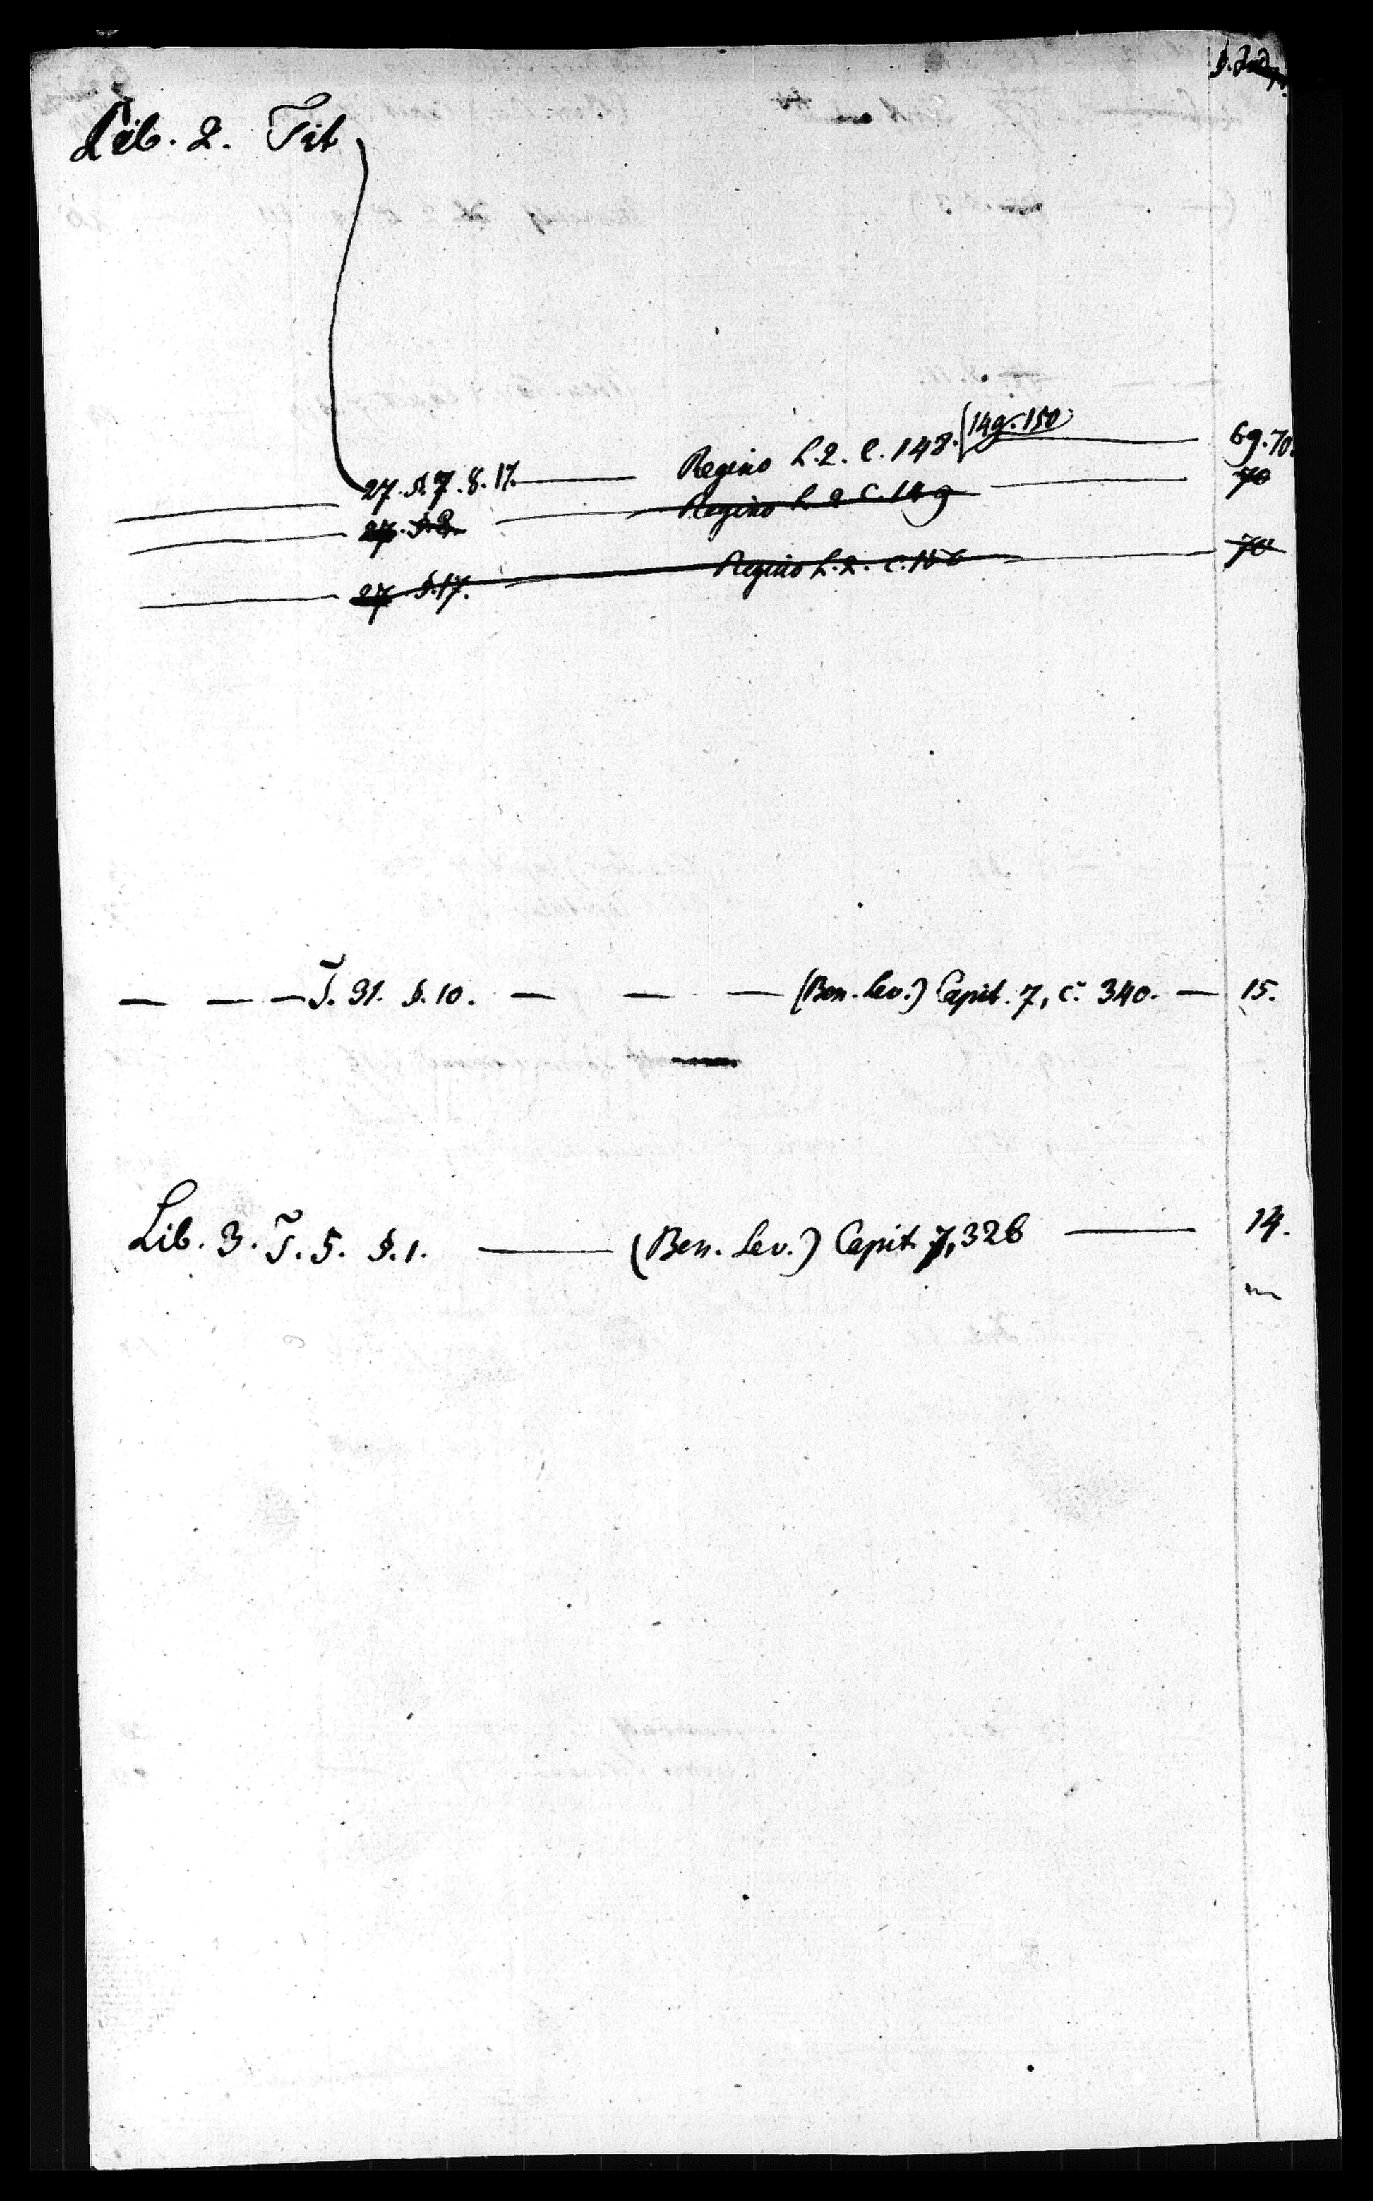 Lib. 2. Tit
27. §. 7. 8. 17. — Regino L. 2. C. 148. (149. 150 — 69. 70.
— 27. §. 8. — Regino L. 2 C. 149 — 70
— 27 §. 17. — Regino L. 2. C. 150 — 70
— — — T. 31. §. 10. — — — (Ben. Lev.) Capit. 7, c. 340. — 15.
Lib. 3. T. 5. §. 1. — (Ben. Lev.) Capit. 7, 326 — 14.